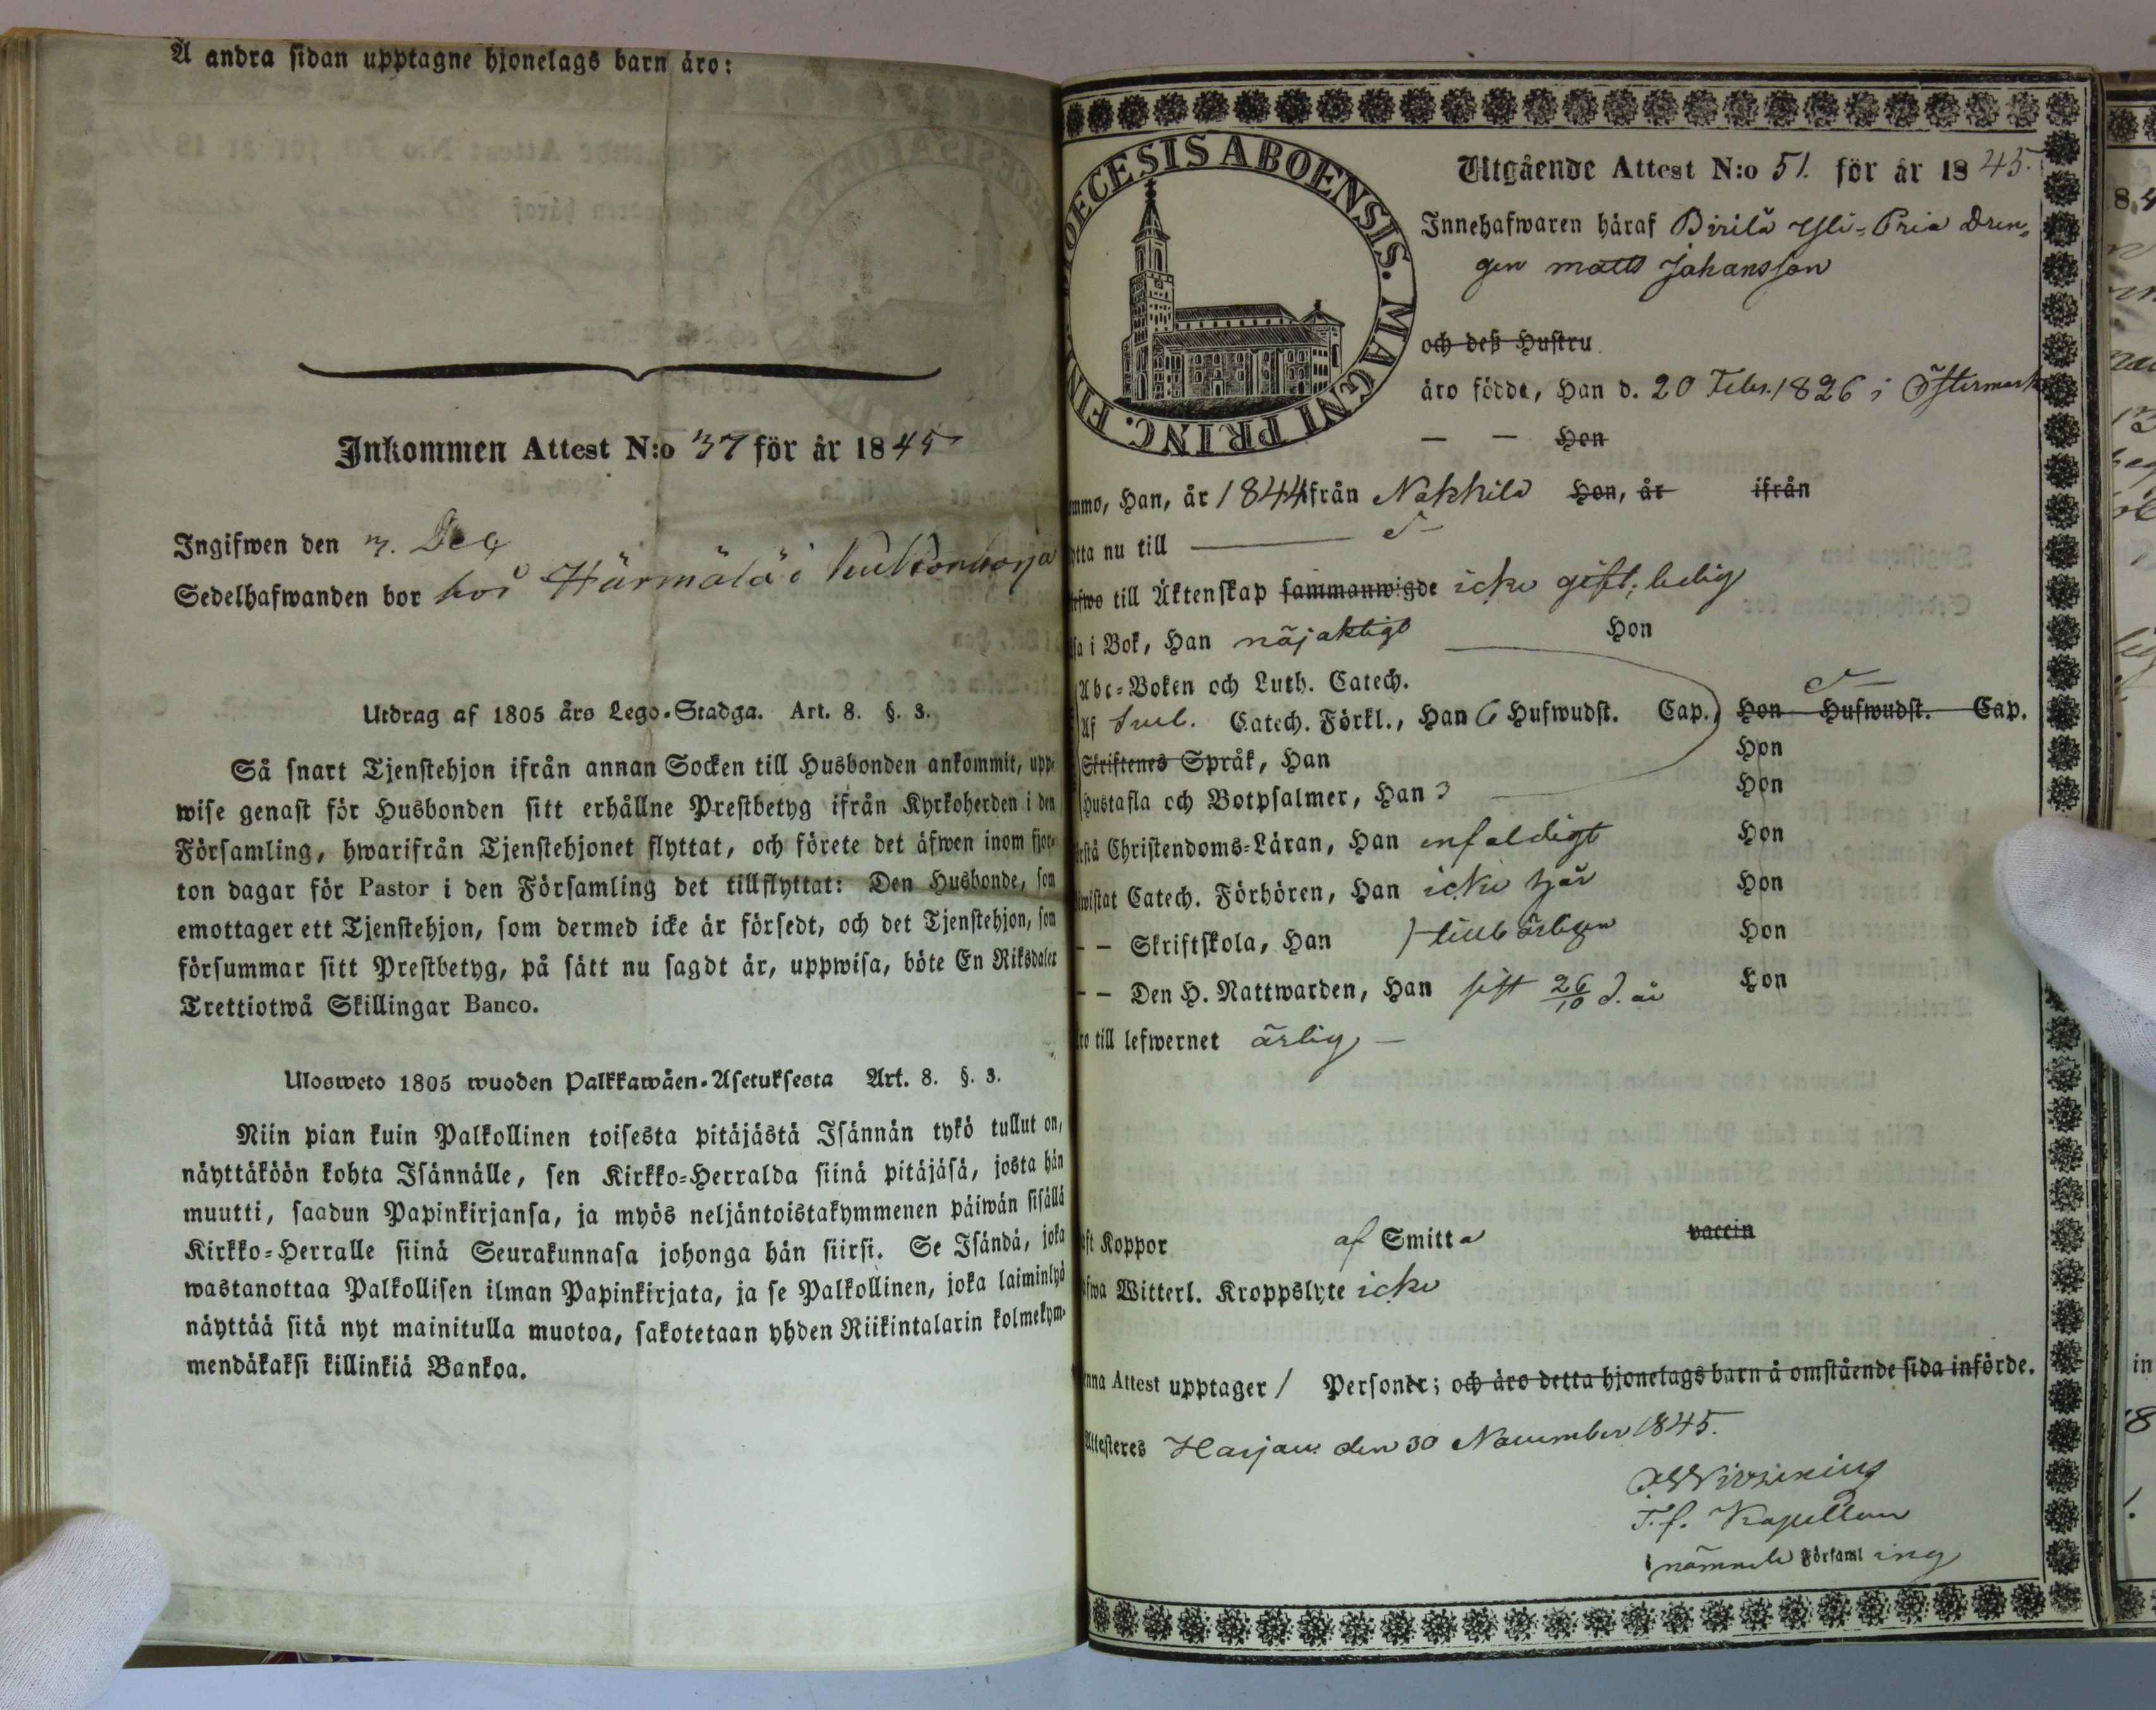 Å andra sidan upptagne hjonelags barn äro:
Inkommen Attest N:o 37 för år 1845
Ingifwen den 7. Dec
Sedelhafwanden bor hos Härmälä i
Utdrag af 1805 års Lego-Stadga. Art. 8. §. 3.
Så snart Tjenstehjon ifrån annan Socken till Husbonden ankommit, upp-
wise genast för Husbonden sitt erhållne Prestbetyg ifrån Kyrkoherden i den
Församling, hwarifrån Tjenstehjonet flyttat, och förete det äfwen inom fjor-
ton dagar för Pastor i den Församling det tillflyttat: Den Husbonde, som
emottager ett Tjenstehjon, som dermed icke är försedt, och det Tjenstehjon, som
försummar sitt Prestbetyg, på sätt nu sagdt är, uppwisa, böte En Riksdaler
Trettiotwå Skillingar Banco.
Ulosweto 1805 wuoden Palkkawäen-Asetuksesta Art. 8. §. 3.
Niin pian kuin Palkollinen toisesta pitäjästä Isännän tykö tullut on,
näyttäköön kohta Isännälle, sen Kirkko-Herralda siinä pitäjäsä, josta hän
muutti, saadun Papinkirjansa, ja myös neljäntoistakymmenen päiwän sisällä
Kirkko-Herralle siinä Seurakunnasa johonga hän siirsi. Se Isändä, joka
wastanottaa Palkollisen ilman Papinkirjata, ja se Palkollinen, joka laiminlyö
näyttää sitä nyt mainitulla muotoa, sakotetaan yhden Riikintalarin kolmekym-
mendäkaksi killinkiä Bankoa.
DIOECESIS ABOENSIS. MAGNI PRINC. FIN
Utgående Attest N:o 51. för år 1845.
Innehafwaren häraf Birilä Yli-Pria Dren-
gen Matts Johansson
och deß Hustru
äro födde, Han d. 20 Febr. 1826 i Östermark
— — Hon
ommo, Han, år 1844 ifrån Nakkila Hon, år ifrån
ytta nu till
efwo till Äktenskap sammanwigde icke gift; ledig
äsa i Bok, Han nöjaktigt Hon
Abc-Boken och Luth. Catech.
Af Catech. Förkl., Han 6 Hufwudst. Cap. Hon Hufwudst. Cap.
Skriftenes Språk, Han Hon
Hustafla och Botpsalmer, Han 3 Hon
rstå Christendoms-Läran, Han enfaldigt Hon
wistat Catech. Förhören, Han icke här Hon
— — Skriftskola, Han Hon
— — Den H. Nattwarden, Han sist 26/10 d. år Hon
ro till lefwernet ärlig —
ft Koppor af Smitta vaccin
afwa Witterl. Kroppslyte icke
nna Attest upptager 1 Personer; och äro detta hjonelags barn å omstående sida införde.
Attesteras Harjau den 30 November 1845.
T. f. Kapellan
i nämnde Församling